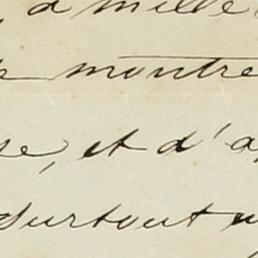 , d'mille
e montre
se, et d'a
surtout